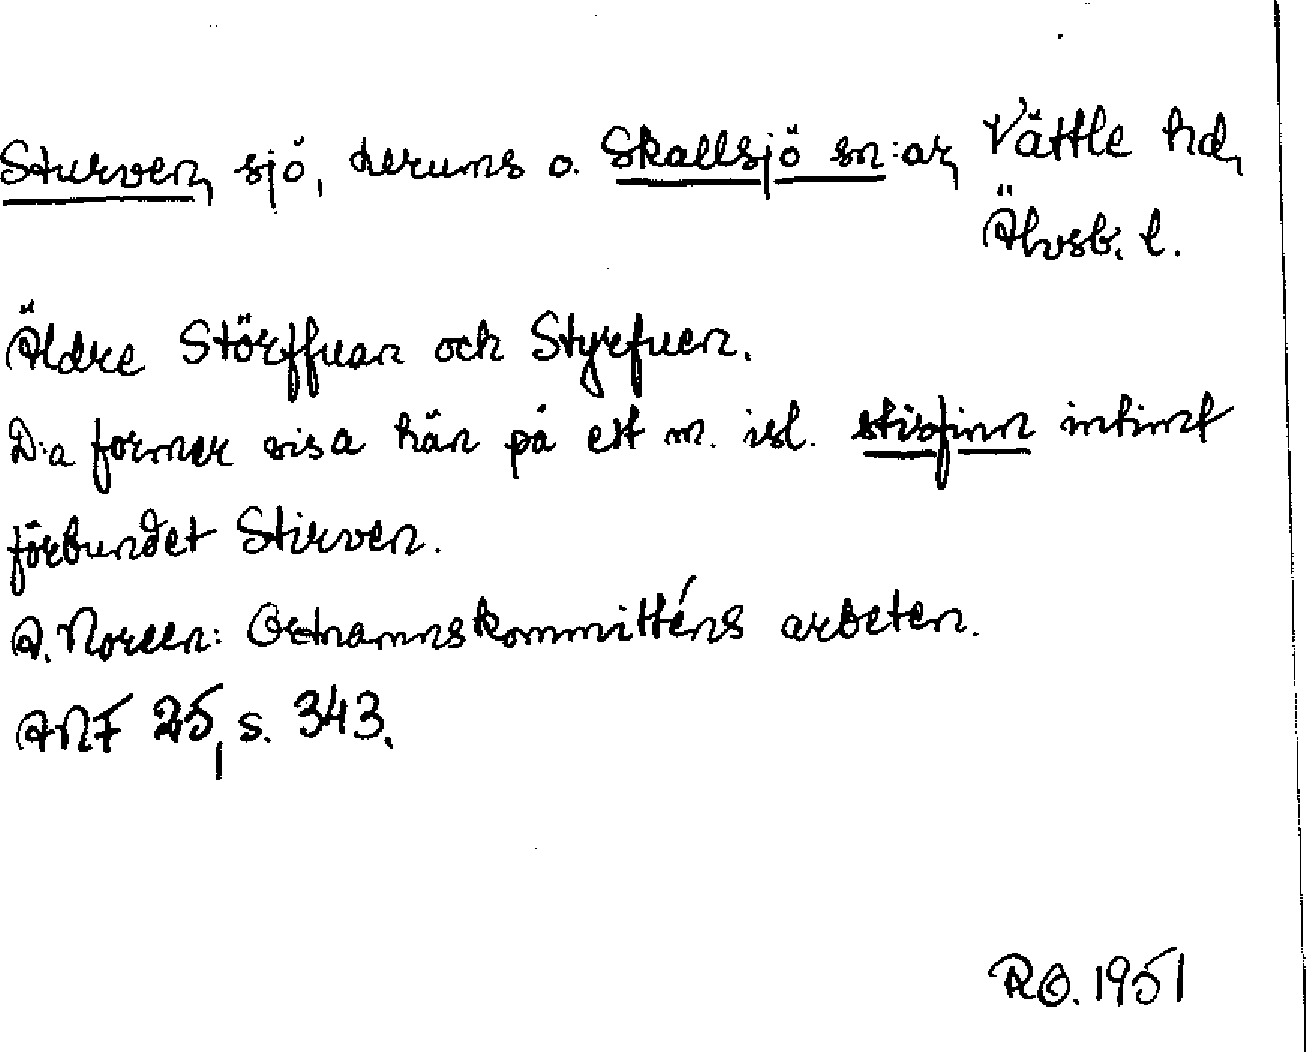 Sturven, sjö, Lerums o. Skallsjö sn:ar, Vättle hd,
Älvsb. l.
Äldre Störffuan och Styrfuen.
D:a former visa hän på ett m. isl. stirfinn intimt
förbundet Stirven.
A. Noreen: Ortnamnskommitténs arbeten.
ANF 25, s. 343.
RO. 1951